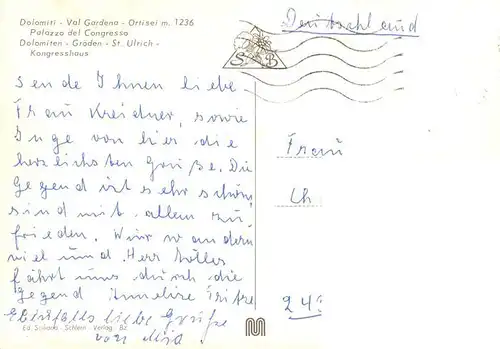 Dolomiti - Val Gardena - Ortisei m. 1236
Palazzo del Congresso
Dolomiten - Gröden - St. Ulrich -
Kongresshaus
Deutschland
S B
sende Ihnen liebe
Frau Kreidner, sowie
Inge von hier die
herzlichsten Grüße. Die
Gegend ist sehr schön
sind mit allem zu
frieden. Wir wandern
viel und Herr
fährt uns durch die
Gegend Annelise
Ebenfalls liebe Grüße
von
Frau
Ch
24
Ed. Schlern Verlag BZ